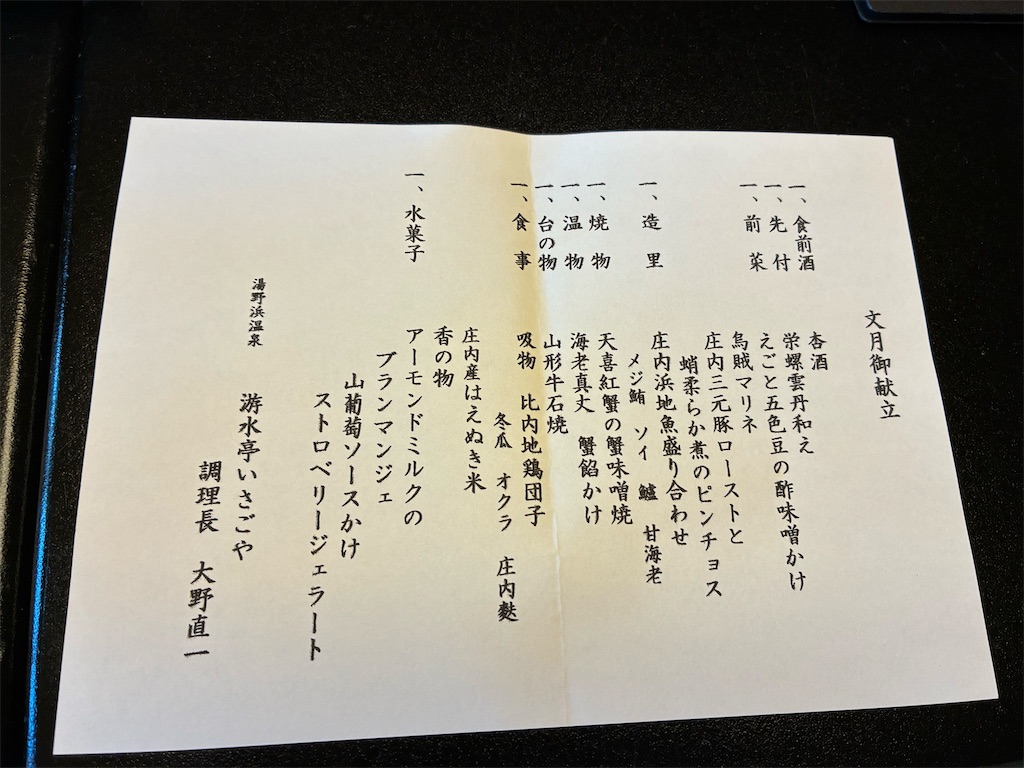 文月御献立
一、食前酒 杏酒
一、先付 栄螺雲丹和え
えごと五色豆の酢味噌かけ
一、前菜 烏賊マリネ
庄内三元豚ローストと
蛸柔らか煮のピンチョス
一、造里 庄内浜地魚盛り合わせ
メジ鮪 ソイ 鱸 甘海老
一、焼物 天喜紅蟹の蟹味噌焼
一、温物 海老真丈 蟹餡かけ
一、台の物 山形牛石焼
一、食事 吸物 比内地鶏団子
冬瓜 オクラ 庄内麩
庄内産はえぬき米
香の物
一、水菓子 アーモンドミルクの
ブランマンジェ
山葡萄ソースかけ
ストロベリージェラート
湯野浜温泉
游水亭いさごや
調理長 大野直一